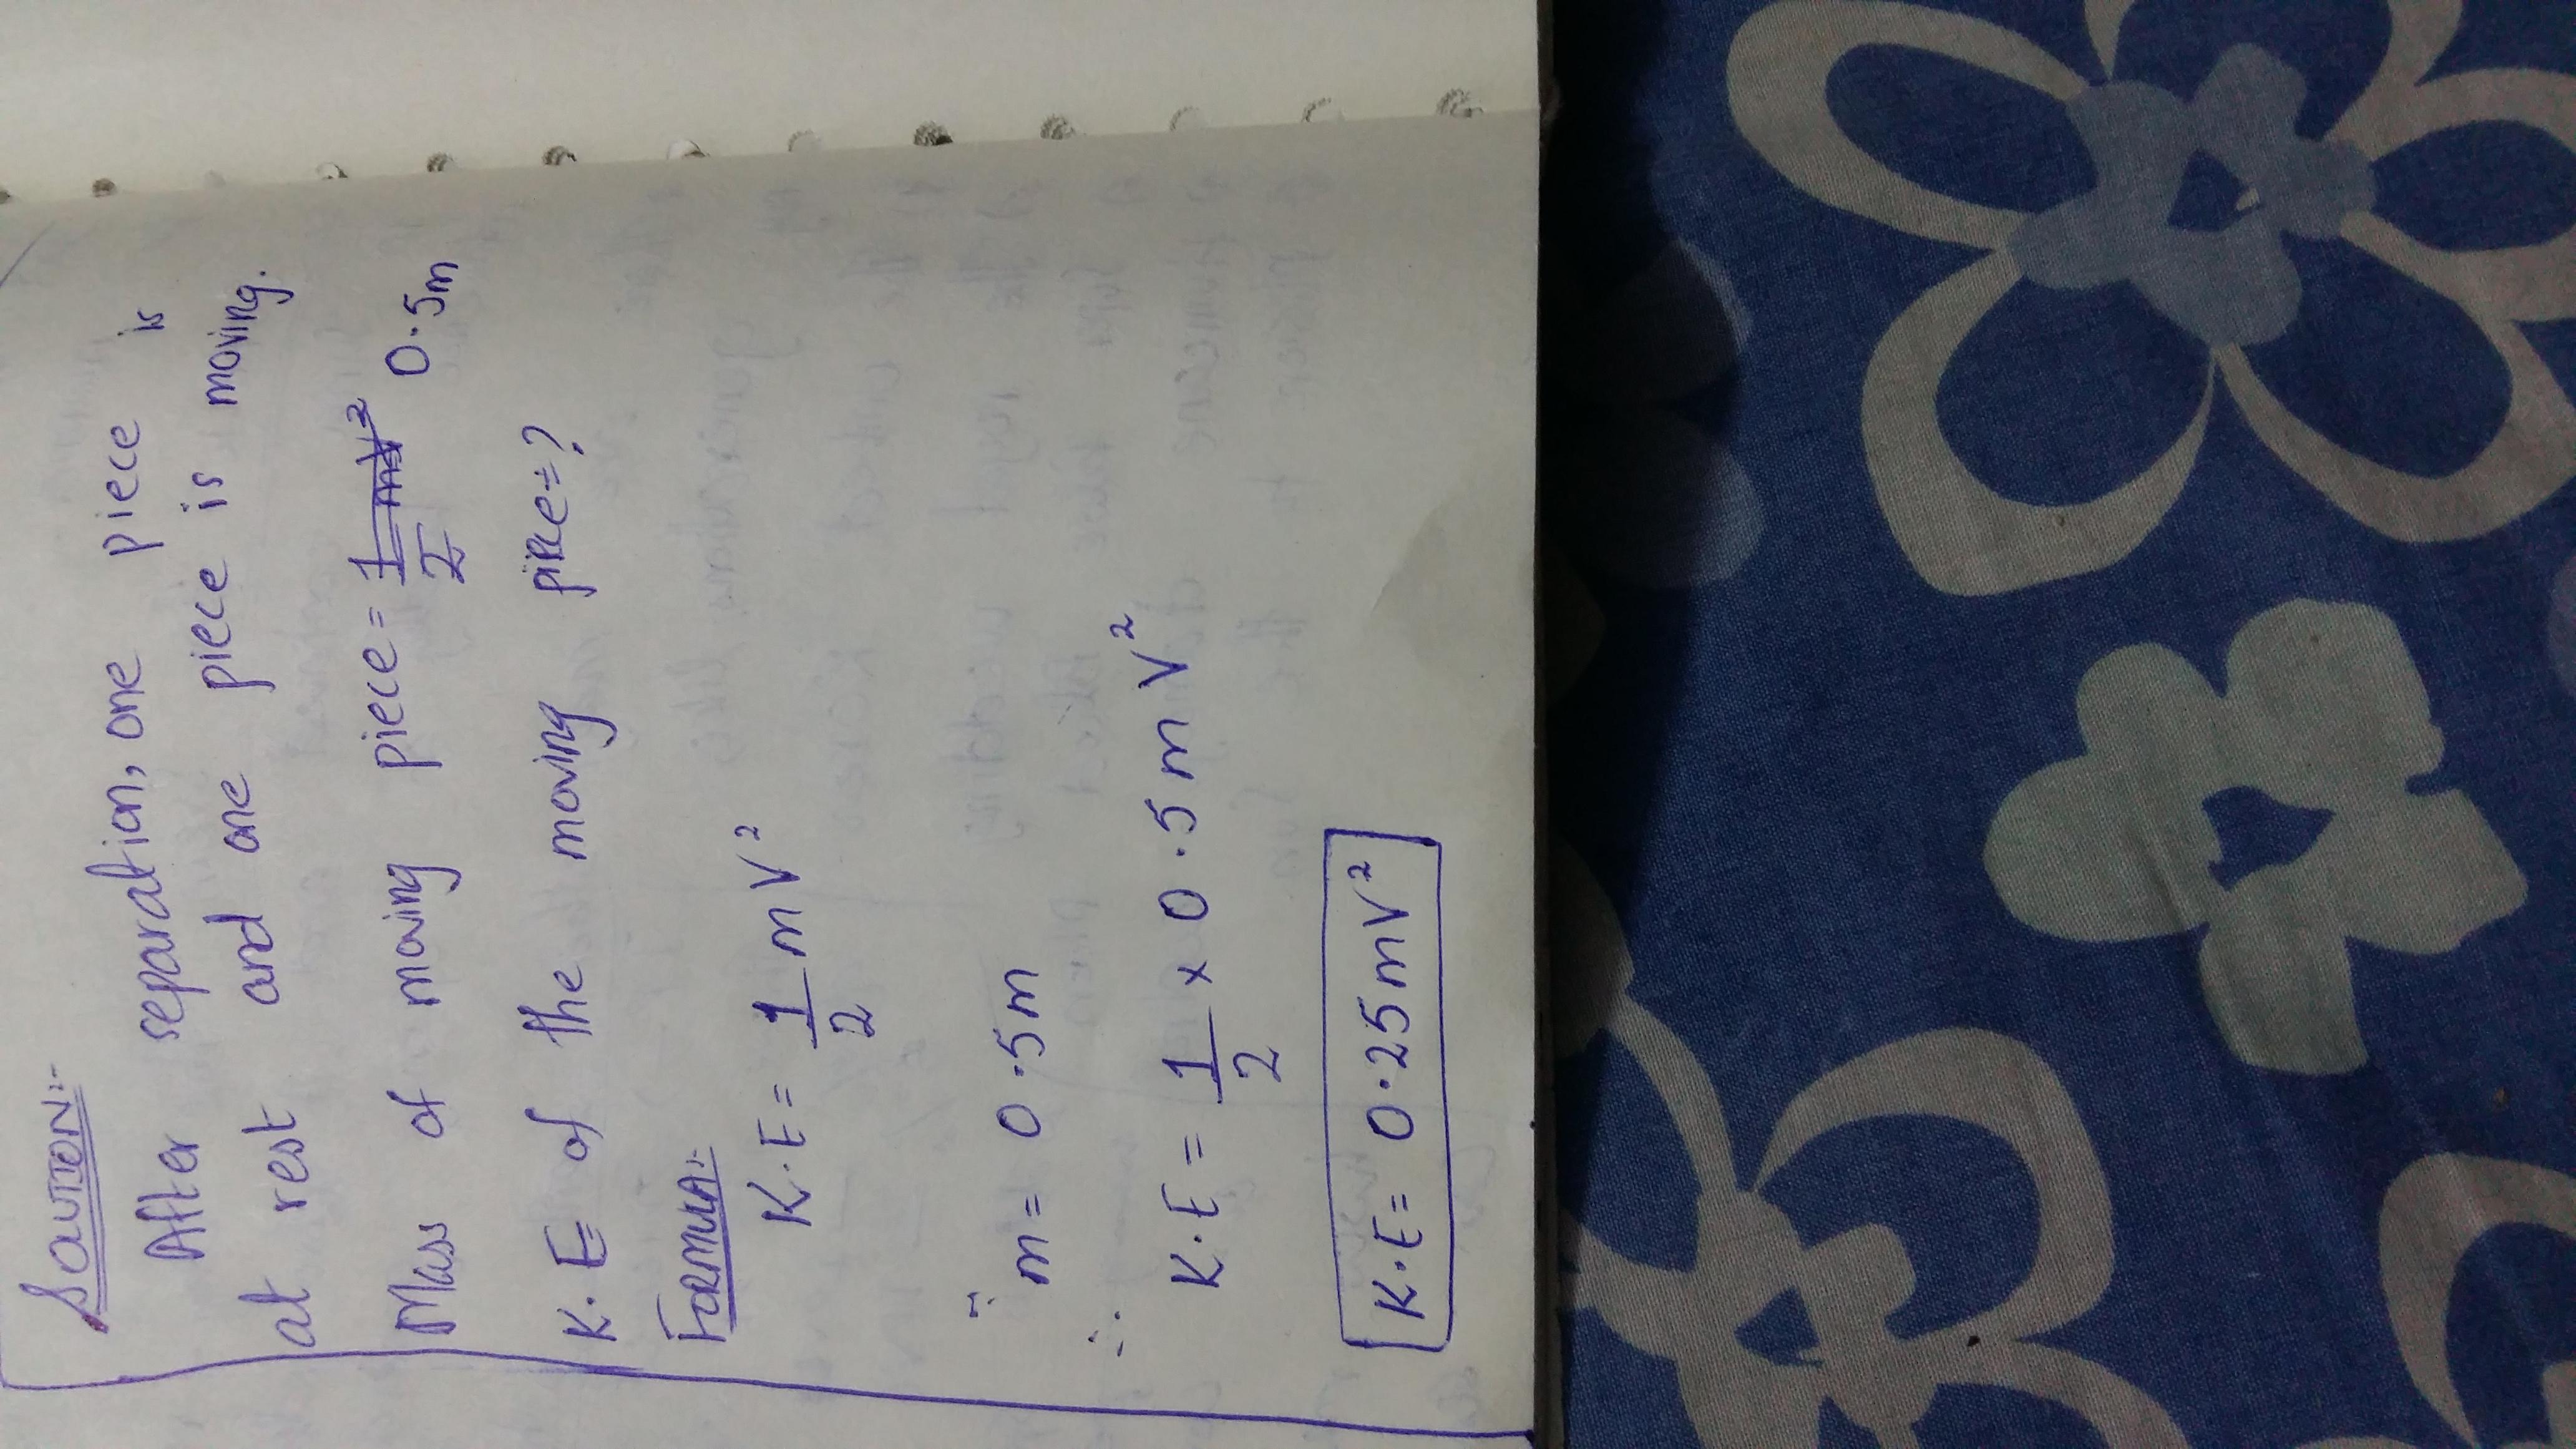 SOLUTION:-
After separation, one piece is
at rest and one piece is moving.
Mass of moving piece = 0.5m
K.E of the moving piece=?
FORMULA:-
K.E = 1/2 mV²
∵ m = 0.5m
∴ K.E = 1/2 × 0.5mV²
K.E = 0.25mV²